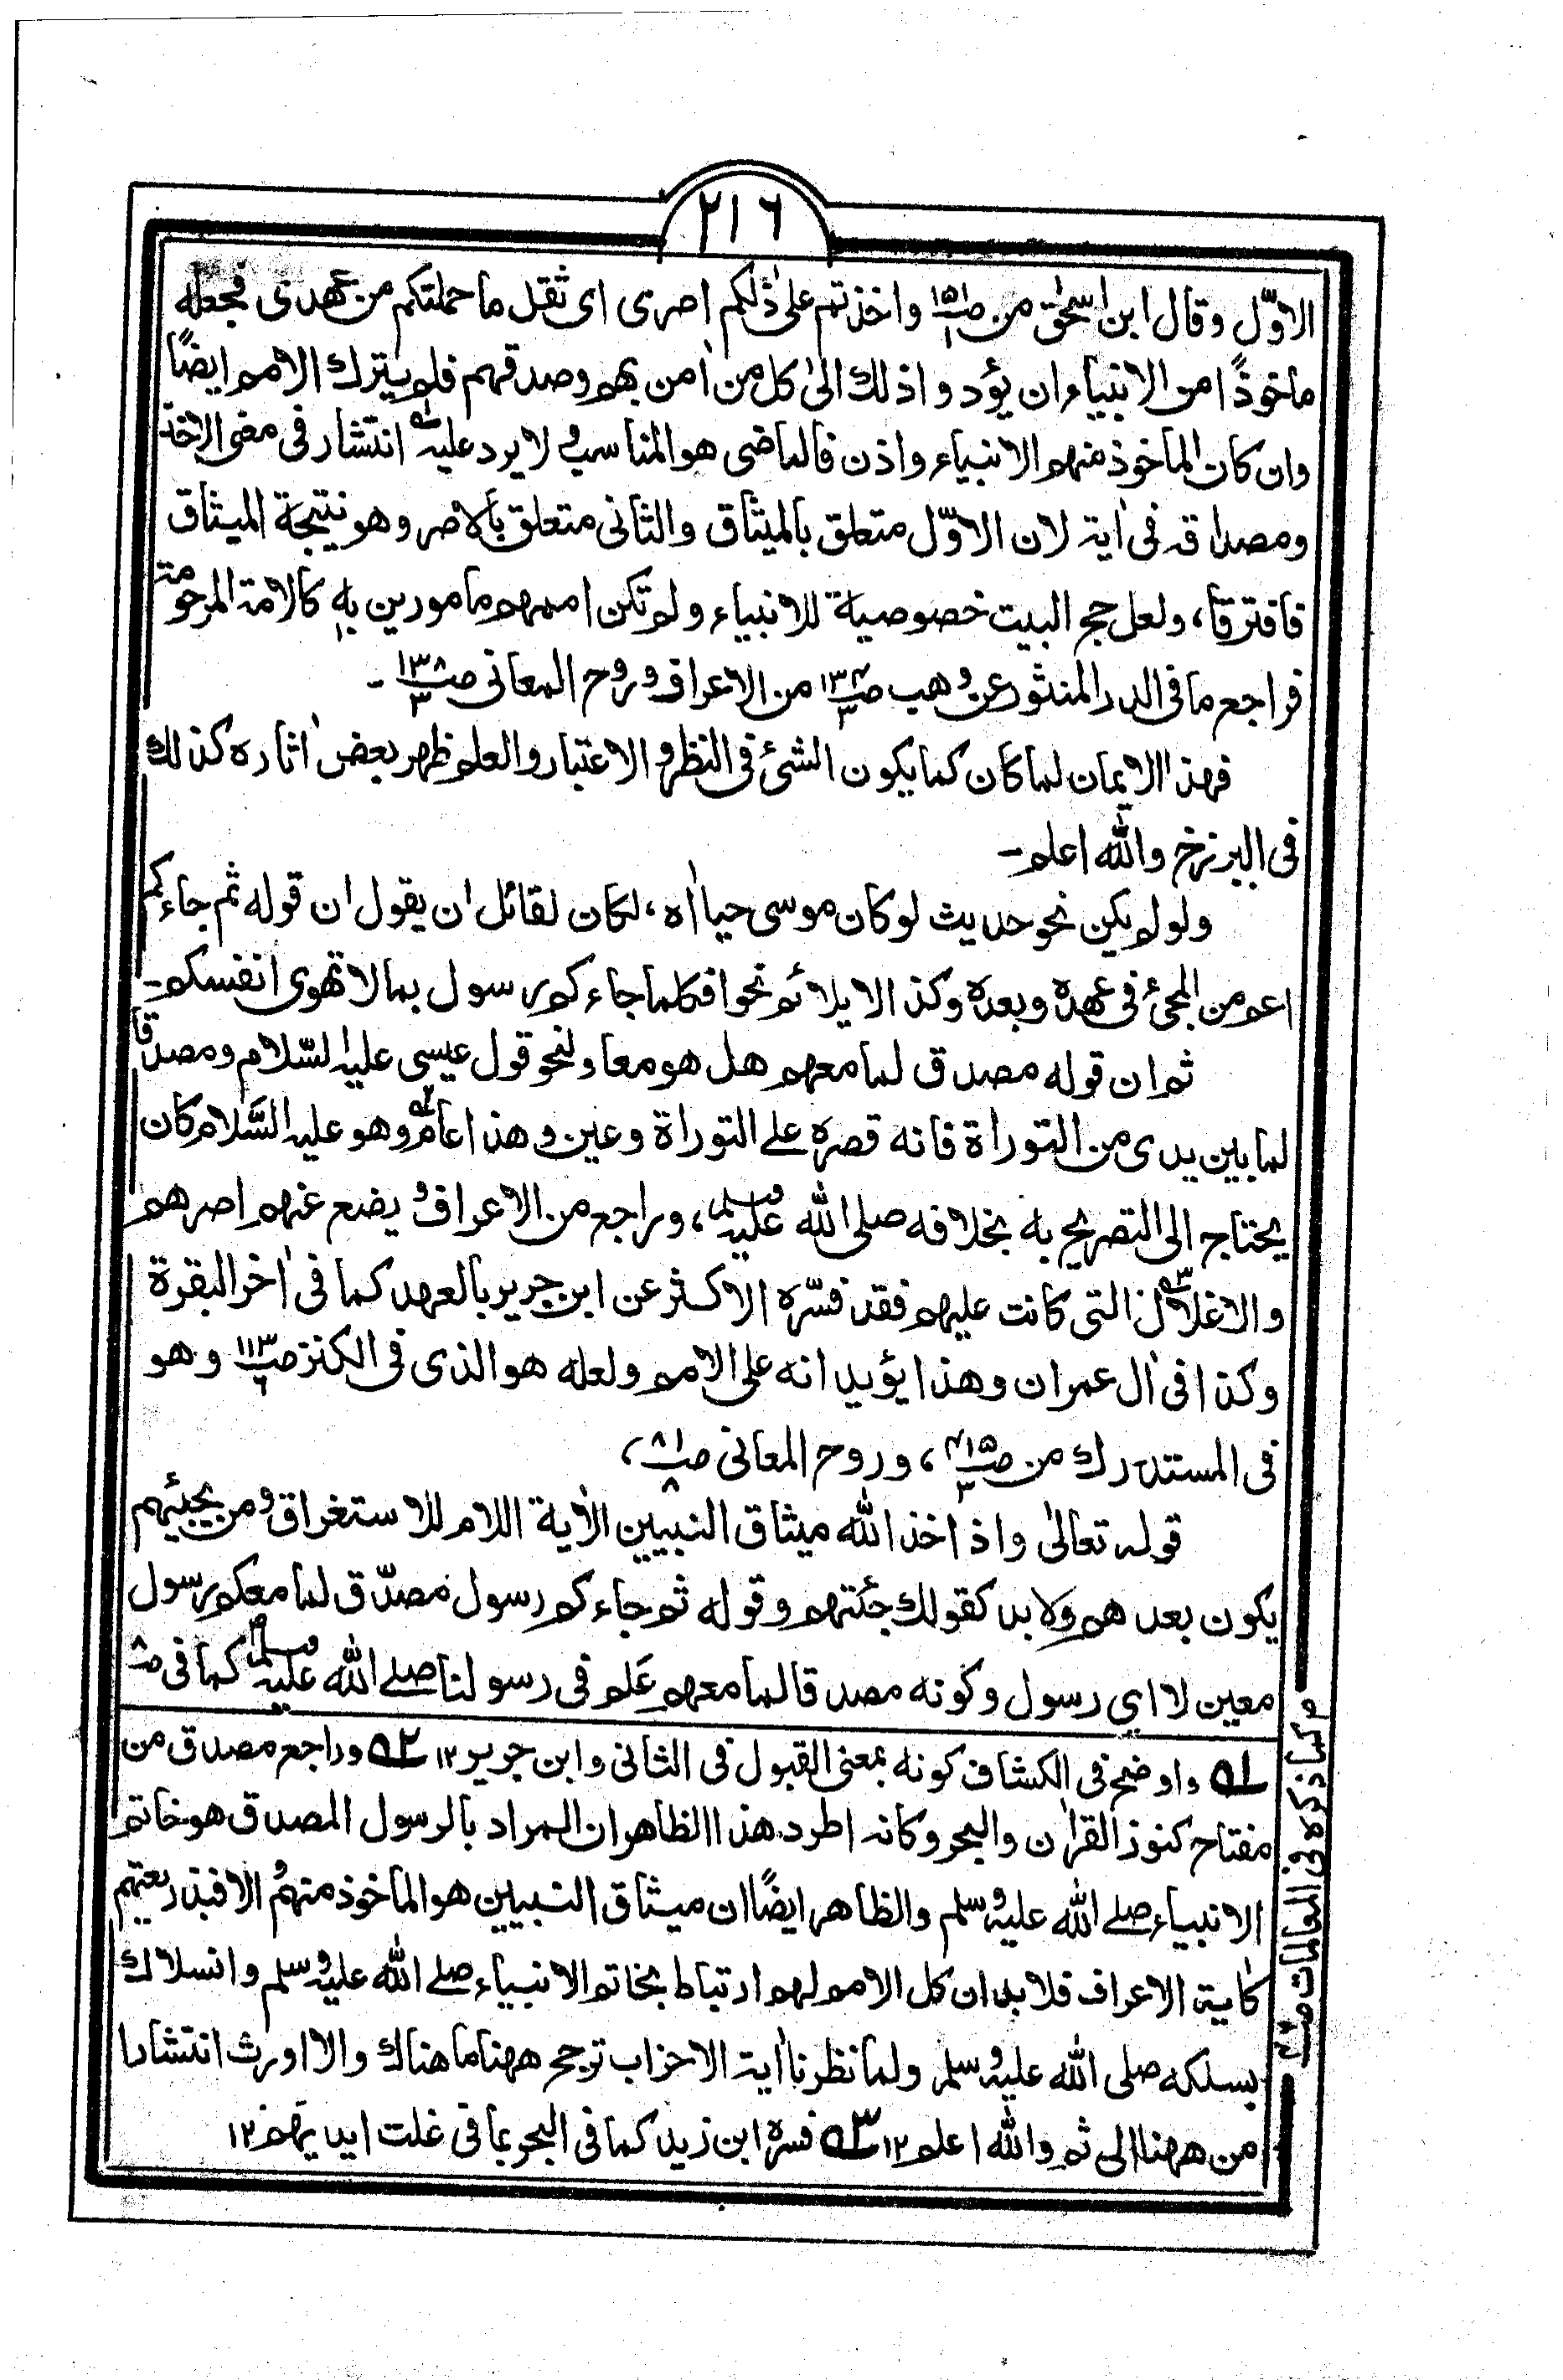 ٢١٦
الاوّل وقال ابن اسحٰق من ص١٥١/١ واخذتم علىٰ ذٰلكم اصرى اى ثقل ما حملتكم من عهدى فجعله
ماخوذًا من الانبياء ان يؤدوا ذلك الىٰ كل من اٰمن بهم وصدقهم فلم يترك الامم ايضًا
وان كان الماخوذ منهم الانبياء واذن فالماضى هو المناسب ولا يرد عليه له انتشار فى معنى الاخذ
ومصداقه فى اٰية لان الاوّل متعلق بالميثاق والثانى متعلق بالاصر وهو نتيجة الميثاق
فافترقا، ولعل حج البيت خصوصية للانبياء ولم تكن اممهم مامورين به كالامة المرحومة
فراجع ما فى الدر المنثور عن وهب ص١٣٤/٣ من الاعراف وروح المعانى ص١٣٨/٣ -
فهذا الايمان لما كان كما يكون الشئ فى النظر و الاعتبار والعلم ظهر بعض اٰثاره كذلك
فى البرزخ والله اعلم -
ولو لم يكن نحو حديث لو كان موسى حيا اه، لكان لقائل ان يقول ان قوله ثم جاءكم
اعم من المجئ فى عهدة وبعدة وكذا لا يلائم نحو افكلما جاءكم رسول بما لا تهوى انفسكم -
ثم ان قوله مصدق لما معهم هل هو معا ولنحو قول عيسى عليه السّلام ومصدقا
لما بين يدى من التوراة فانه قصره على التوراة وعين وهذا عام ٢ه وهو عليه السَّلام كان
يحتاج الى التصريح به بخلافه صلى الله عليه وسلم، وراجع من الاعراف و يضع عنهم اصرهم
والاغلال ٣ه التى كانت عليهم فقد فسّره الاكثر عن ابن جرير بالعهد كما فى اٰخر البقرة
وكذا فى اٰل عمران وهذا يؤيد انه على الامم ولعله هو الذى فى الكنز ص١١٣/٦ وهو
فى المستدرك من ص٤١٥/٣، وروح المعانى ص٨١/٨،
قوله تعالىٰ واذ اخذ الله ميثاق النبيين الاٰية اللام للاستغراق ومن يجيئهم
يكون بعد هم ولا بد كقولك جئتهم وقوله ثم جاءكم رسول مصدّق لما معكم رسول
معين لا اي رسول وكونه مصدقا لما معهم عَلم فى رسولنا صلے الله عليه وسلم ٣ كما فى ص٨
١ه واوضح فى الكشاف كونه بمعنى القبول فى الثانى وابن جرير ١٢ ٢ه وراجع مصدق من
مفتاح كنوز القراٰن والبحر وكانه اطرد هذا الظاهر ان المراد بالرسول المصدق هو خاتم
الانبياء صلے الله عليه وسلم والظاهر ايضًا ان ميثاق النبيين هو الماخوذ منهم والا فبذريعتهم
كاٰية الاعراف فلا بد ان كل الامم لهم ارتباط بخاتم الانبياء صلے الله عليه وسلم وانسلاك
بسلكه صلى الله عليه وسلم ولما نظرنا اٰية الاحزاب ترجح ههنا ما هناك والا اورث انتشارا
من ههنا الى ثم والله اعلم ١٢ ٣ه فسره ابن زيد كما فى البحر بما فى غلت ايديهم ١٢
م كما ذكره فى المعالمات